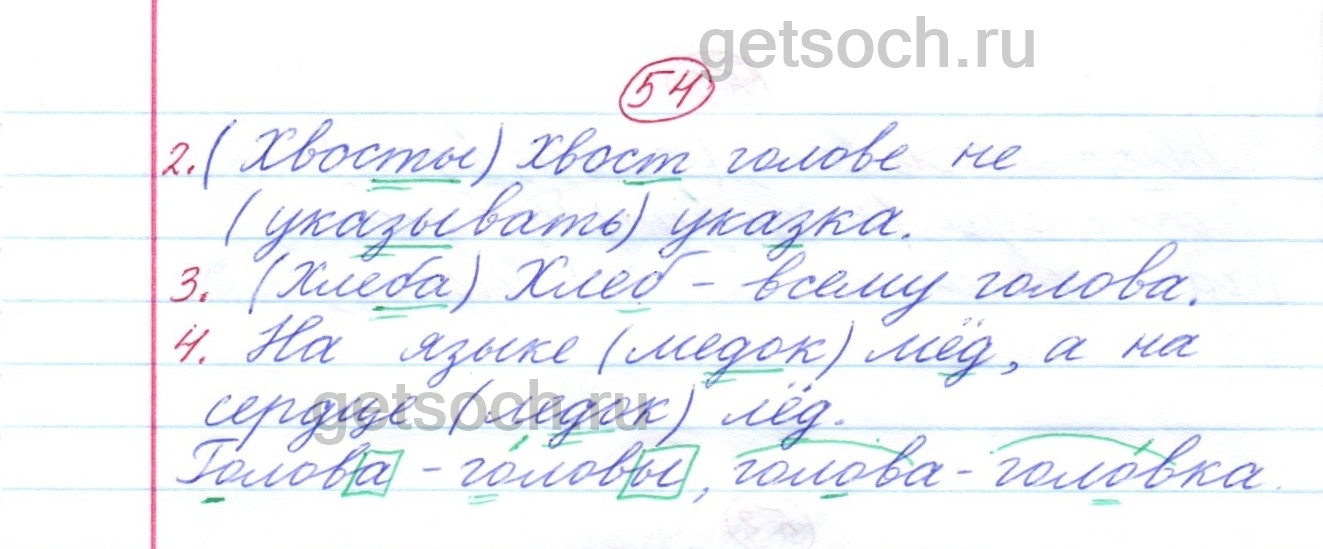 getsoch.ru
54
2. (Хвосты) Хвост голове не
(указывать) указка.
3. (Хлеба) Хлеб - всему голова.
4. На языке (медок) мёд, а на
сердце (ледок) лёд.
getsoch.ru
Голова - головы, голова - головка.